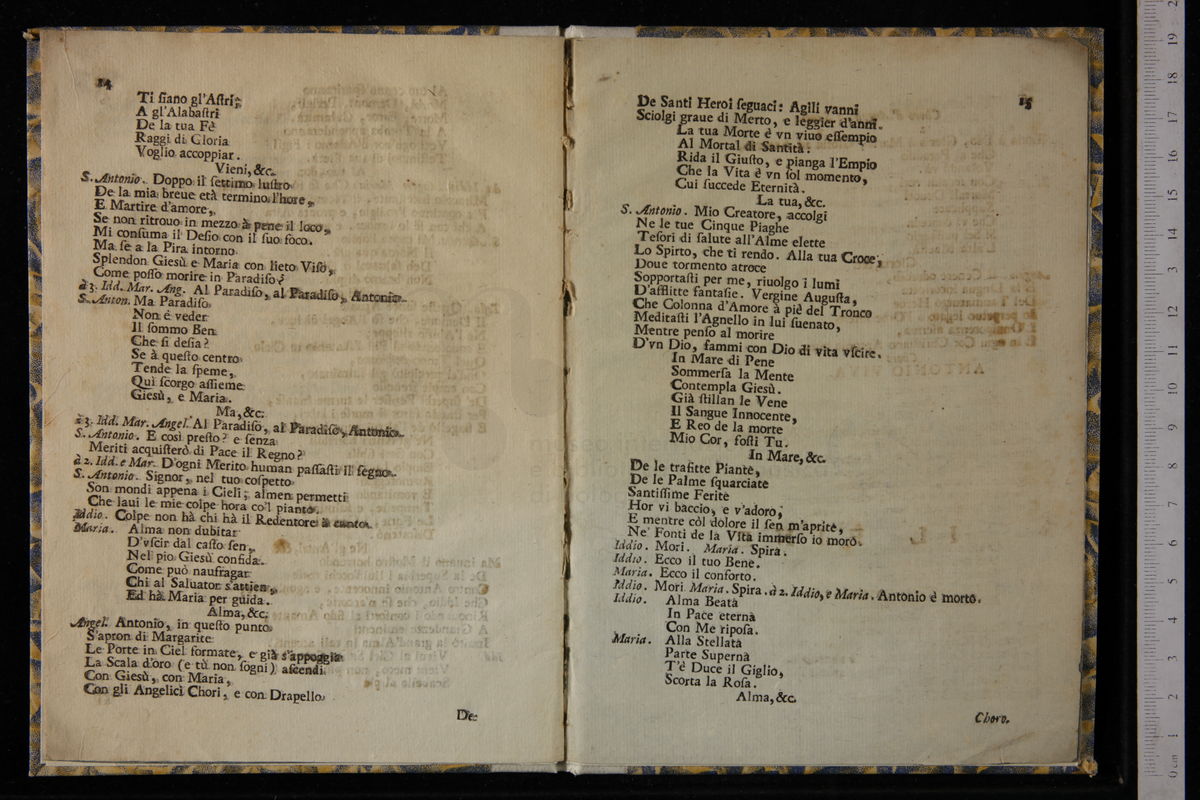 14
Ti ſiano gl'Aſtri;
A gl'Alabaſtri
De la tua Fè
Raggi di Gloria
Voglio accoppiar.
Vieni, &c.
S. Antonio. Doppo il ſettimo luſtro
De la mia breue età termino l'hore,
E Martire d'amore,
Se non ritrouo in mezzo à pene il loco,
Mi conſuma il Deſio con il ſuo foco.
Ma ſe a la Pira intorno
Splendon Giesù e Maria con lieto Viſo,
Come poſſo morire in Paradiſo?
à 3. Idd. Mar. Ang. Al Paradiſo, al Paradiſo, Antonio.
S. Anton. Ma Paradiſo
Non é veder
Il ſommo Ben
Che ſi deſia?
Se à queſto centro
Tende la ſpeme,
Qui ſcorgo aſſieme
Giesù, e Maria.
Ma, &c.
à 3. Idd. Mar. Angel. Al Paradiſo, al Paradiſo, Antonio.
S. Antonio. E così preſto? e ſenza
Meriti acquiſterò di Pace il Regno?
à 2. Idd. e Mar. D'ogni Merito human paſſaſti il ſegno.
S. Antonio. Signor, nel tuo coſpetto
Son mondi appena i Cieli; almen permetti
Che laui le mie colpe hora co'l pianto.
Iddio. Colpe non hà chi hà il Redentore à canto.
Maria. Alma non dubitar
D'vſcir dal caſto ſen,
Nel pio Giesù confida.
Come può naufragar
Chi al Saluator s'attien,
Ed hà Maria per guida.
Alma, &c.
Angel. Antonio, in queſto punto
S'apron di Margarite
Le Porte in Ciel formate, e già s'appoggia
La Scala d'oro (e tù non ſogni) aſcendi
Con Giesù, con Maria,
Con gli Angelici Chori, e con Drapello
De
15
De Santi Heroi ſeguaci: Agili vanni
Sciolgi graue di Merto, e leggier d'anni.
La tua Morte è vn viuo eſſempio
Al Mortal di Santità:
Rida il Giuſto, e pianga l'Empio
Che la Vita è vn ſol momento,
Cui ſuccede Eternità.
La tua, &c.
S. Antonio. Mio Creatore, accolgi
Ne le tue Cinque Piaghe
Teſori di ſalute all'Alme elette
Lo Spirto, che ti rendo. Alla tua Croce,
Doue tormento atroce
Sopportaſti per me, riuolgo i lumi
D'afflitte fantaſie. Vergine Auguſta,
Che Colonna d'Amore à piè del Tronco
Meditaſti l'Agnello in lui ſuenato,
Mentre penſo al morire
D'vn Dio, fammi con Dio di vita vſcire.
In Mare di Pene
Sommerſa la Mente
Contempla Giesù.
Già ſtillan le Vene
Il Sangue Innocente,
E Reo de la morte
Mio Cor, foſti Tu.
In Mare, &c.
De le trafitte Piante,
De le Palme ſquarciate
Santiſſime Ferite
Hor vi baccio, e v'adoro,
E mentre còl dolore il ſen m'aprite,
Ne' Fonti de la Vita immerſo io moro.
Iddio. Mori. Maria. Spira.
Iddio. Ecco il tuo Bene.
Maria. Ecco il conforto.
Iddio. Mori Maria. Spira. à 2. Iddio, e Maria. Antonio è morto.
Iddio. Alma Beata
In Pace eterna
Con Me ripoſa.
Maria. Alla Stellata
Parte Superna
T'è Duce il Giglio,
Scorta la Roſa.
Alma, &c.
Choro.